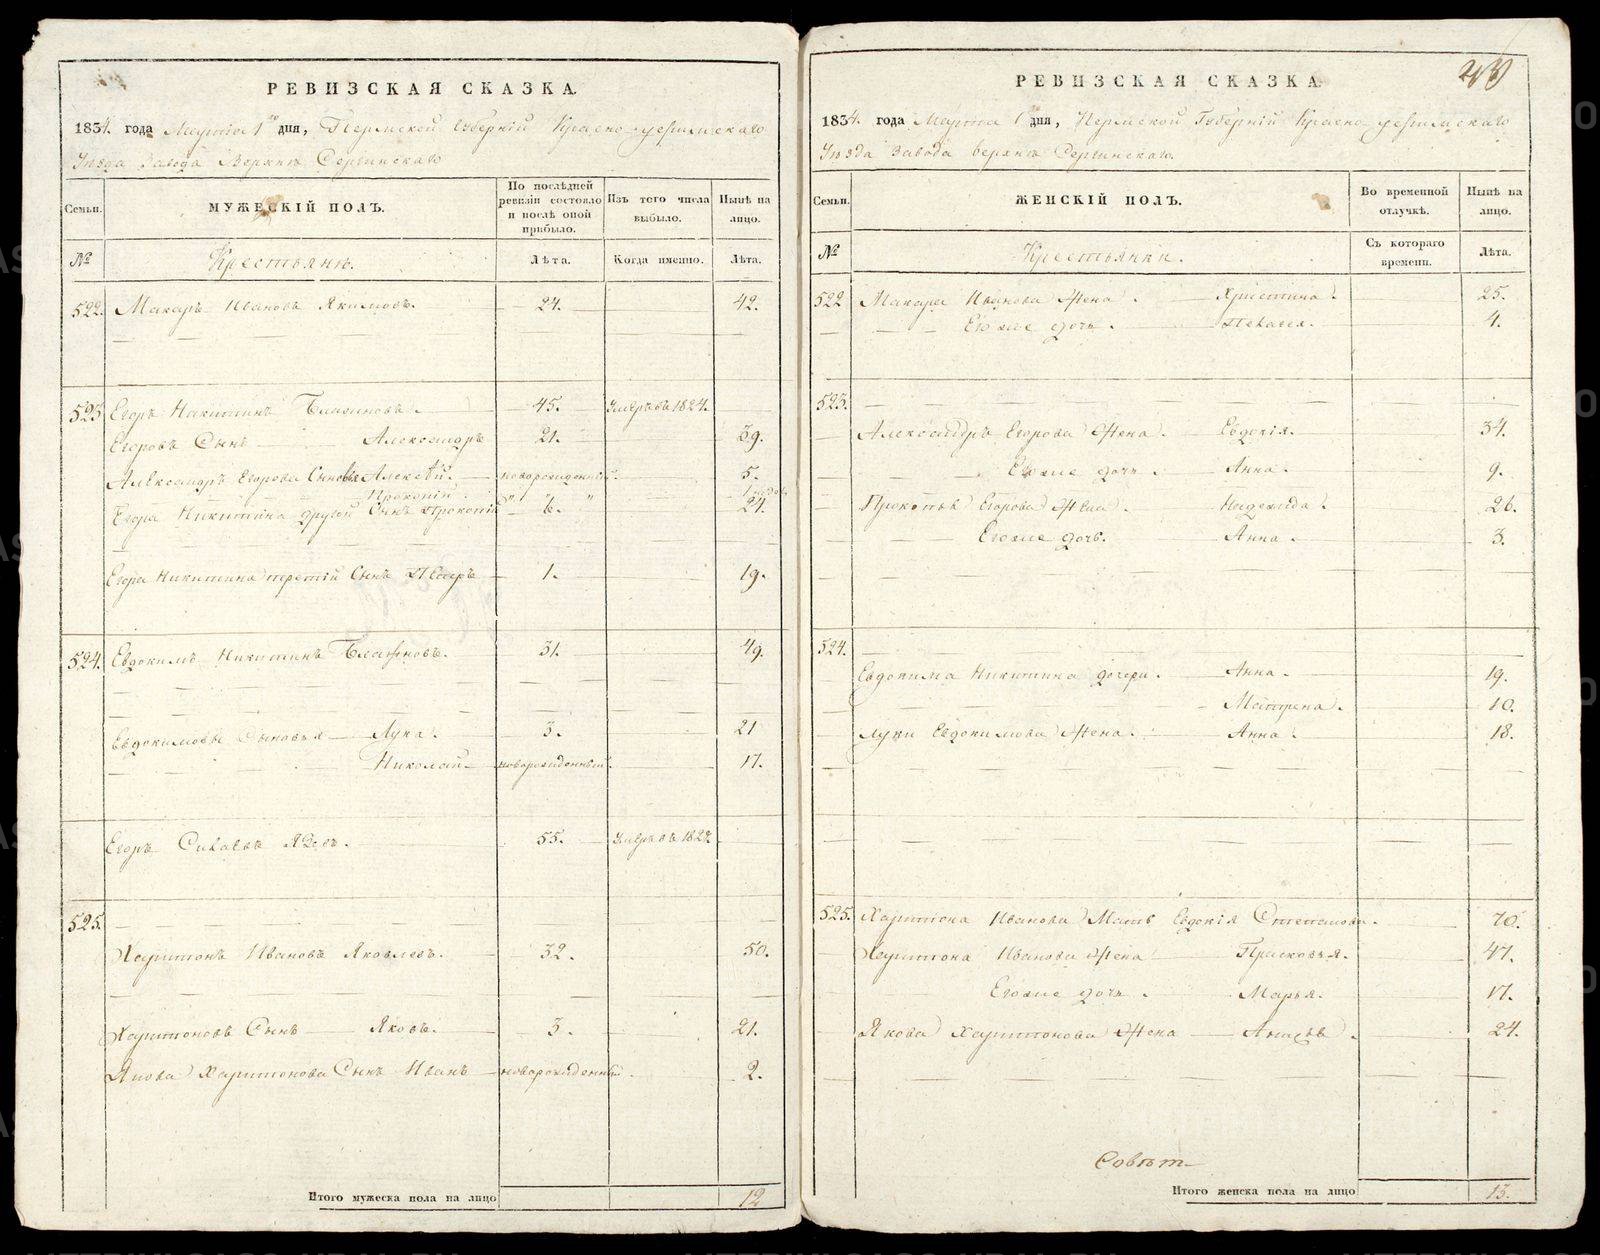 РЕВИЗСКАЯ СКАЗКА.
1834. года Марта 1го дня, Пермской Губерніи Красно-уфимскаго
Уѣзда Завода Верхне Сергинскаго
Семьи.
МУЖЕСКІЙ ПОЛЪ.
По послѣдней ревизіи состояло и послѣ оной прибыло.
Изъ того числа выбыло.
Нынѣ на лицо.
№
Крестьяне.
Лѣта.
Когда именно.
Лѣта.
522. Макаръ Ивановъ Якимовъ. 24. 42.
523 Егоръ Никитинъ Блажновъ. 45. Умеръ въ 1824.
Егоровъ Сынъ Александръ 21. 39.
Александръ Егорова Сыновья Алексѣй. новорожденный. 5.
Прокопій. " " " 1 недѣл
Егора Никитина другой Сынъ Прокопій 6. 24.
Егора Никитина третій Сынъ 1. 19.
524. Евдокимъ Никитинъ Блажновъ. 31. 49.
Евдокимовы Сыновья Лука. 3. 21
Николай новорожденный. 17.
Егоръ 55. Умеръ въ 1827.
525.
Харитонъ Ивановъ Яковлевъ. 32. 50.
Харитоновъ Сынъ Яковъ. 3. 21.
Якова Харитонова Сынъ Иванъ новорожденный. 2.
Итого мужеска пола на лицо 12
РЕВИЗСКАЯ СКАЗКА.
1834. года Марта 1го дня, Пермской Губерніи Красно уфимскаго
Уѣзда Завода Верхне Сергинскаго.
Семьи.
ЖЕНСКІЙ ПОЛЪ.
Во временной отлучкѣ.
Нынѣ на лицо.
№
Крестьянки.
Съ котораго времени.
Лѣта.
522 Макара Иванова Жена. Христина. 25.
Егоже дочь. Пелагея. 4.
523.
Александръ Егорова Жена. Евдокія. 34.
Егоже дочь. Анна. 9.
Прокопья Егорова Жена. Надежда. 26.
Егоже дочь. Анна. 3.
524.
Евдокима Никитина дочери. Анна. 19.
Матрена. 10.
Луки Евдокимова Жена. Анна. 18.
525. Харитона Иванова Мать Евдокія Степанова. 70.
Харитона Иванова Жена Прасковья. 47.
Егоже дочь. Марья. 17.
Якова Харитонова Жена 24.
Итого женска пола на лицо 13.